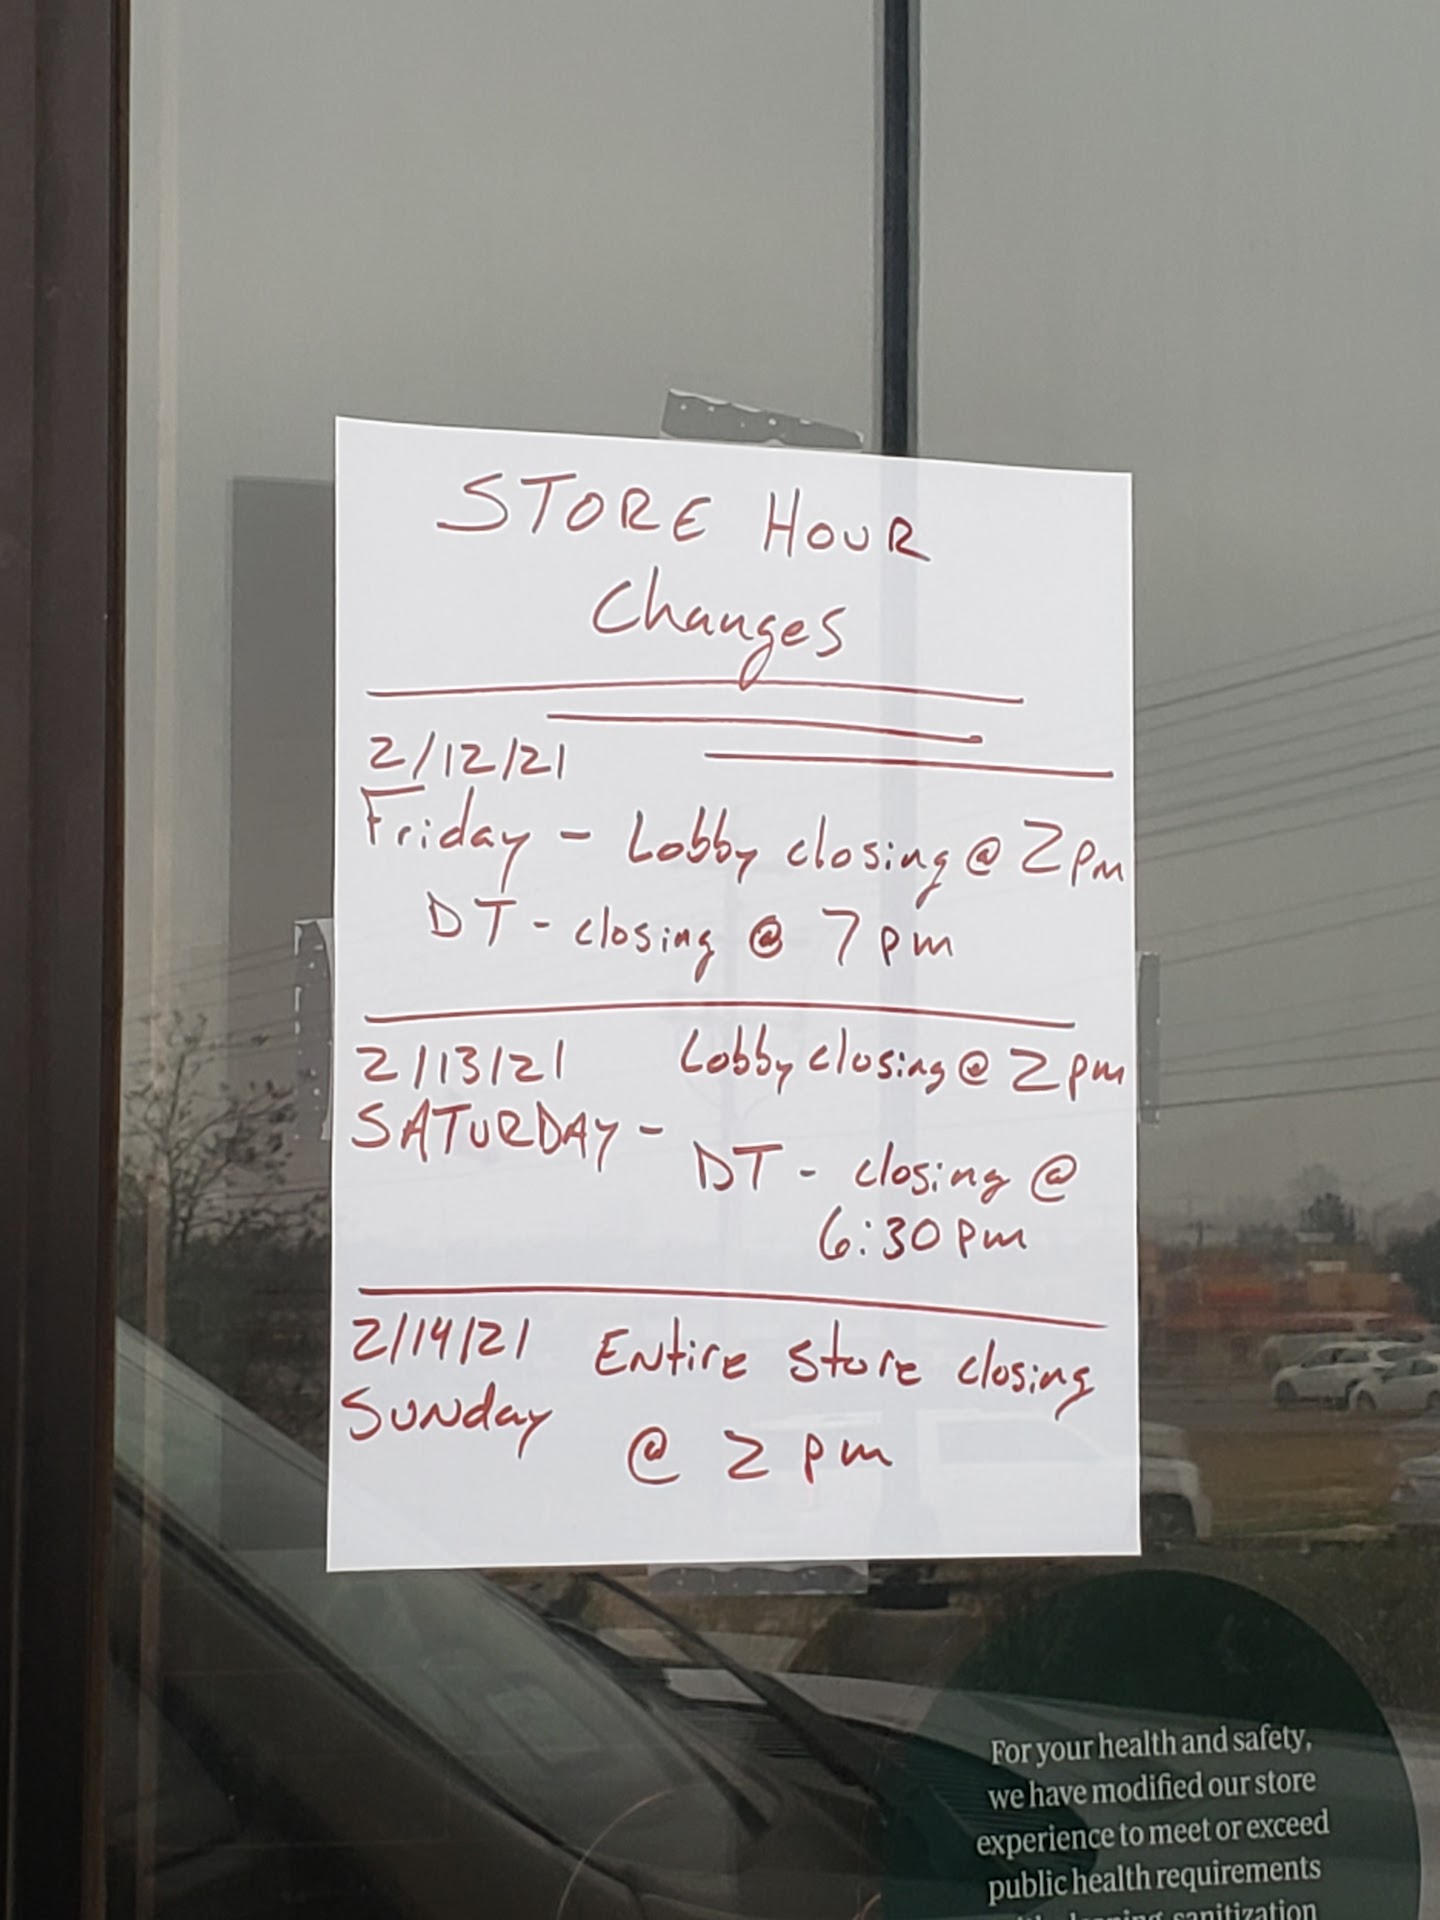 STORE HOUR
Changes
2/12/21
Friday - Lobby closing @ 2pm
DT - closing @ 7pm
2/13/21 Lobby closing @ 2pm
SATURDAY -
DT - closing @
6:30pm
2/14/21 Entire Store closing
Sunday
@ 2pm
For your health and safety,
we have modified our store
experience to meet or exceed
public health requirements
sanitization